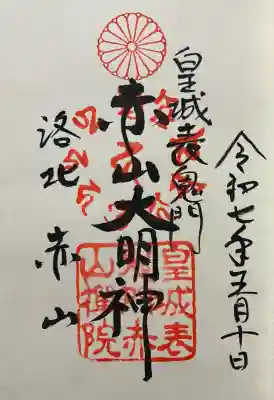 令和七年五月十日
皇城表鬼門
赤山大明神
洛北 赤山
皇城表
赤
山禪院